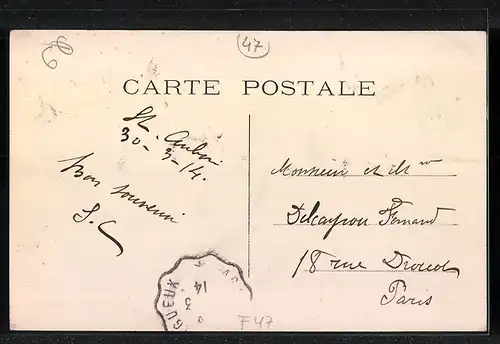 47
CARTE POSTALE
St. Aubin
30-3-14.
Bon souvenir
S. C
Monsieur et Mme
Delcayrou Fernand
18 rue Drouot
Paris
GUEUX
3
14
F47